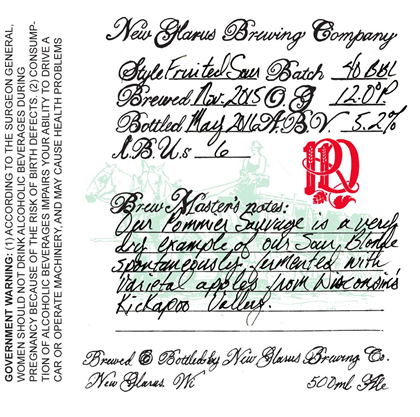 GOVERNMENT WARNING: (1) ACCORDING TO THE SURGEON GENERAL,
WOMEN SHOULD NOT DRINK ALCOHOLIC BEVERAGES DURING
PREGNANCY BECAUSE OF THE RISK OF BIRTH DEFECTS. (2) CONSUMP-
TION OF ALCOHOLIC BEVERAGES IMPAIRS YOUR ABILITY TO DRIVE A
CAR OR OPERATE MACHINERY, AND MAY CAUSE HEALTH PROBLEMS
New Glarus Brewing Company
Style Fruited Sour Batch 40 BBL
Brewed Nov. 2015 O.G 12.0°P.
Bottled May 2016 A.B.V. 5.2%
I.B.U.s 6
Brew Master's notes:
Our Pommier Sauvage is a very
dry example of our Sour, Blonde
spontaneously fermented with
varietal apples from Wisconsin's
Kickapoo Valley.
Brewed & Bottled by New Glarus Brewing Co.
New Glarus, WI 500ml Ale